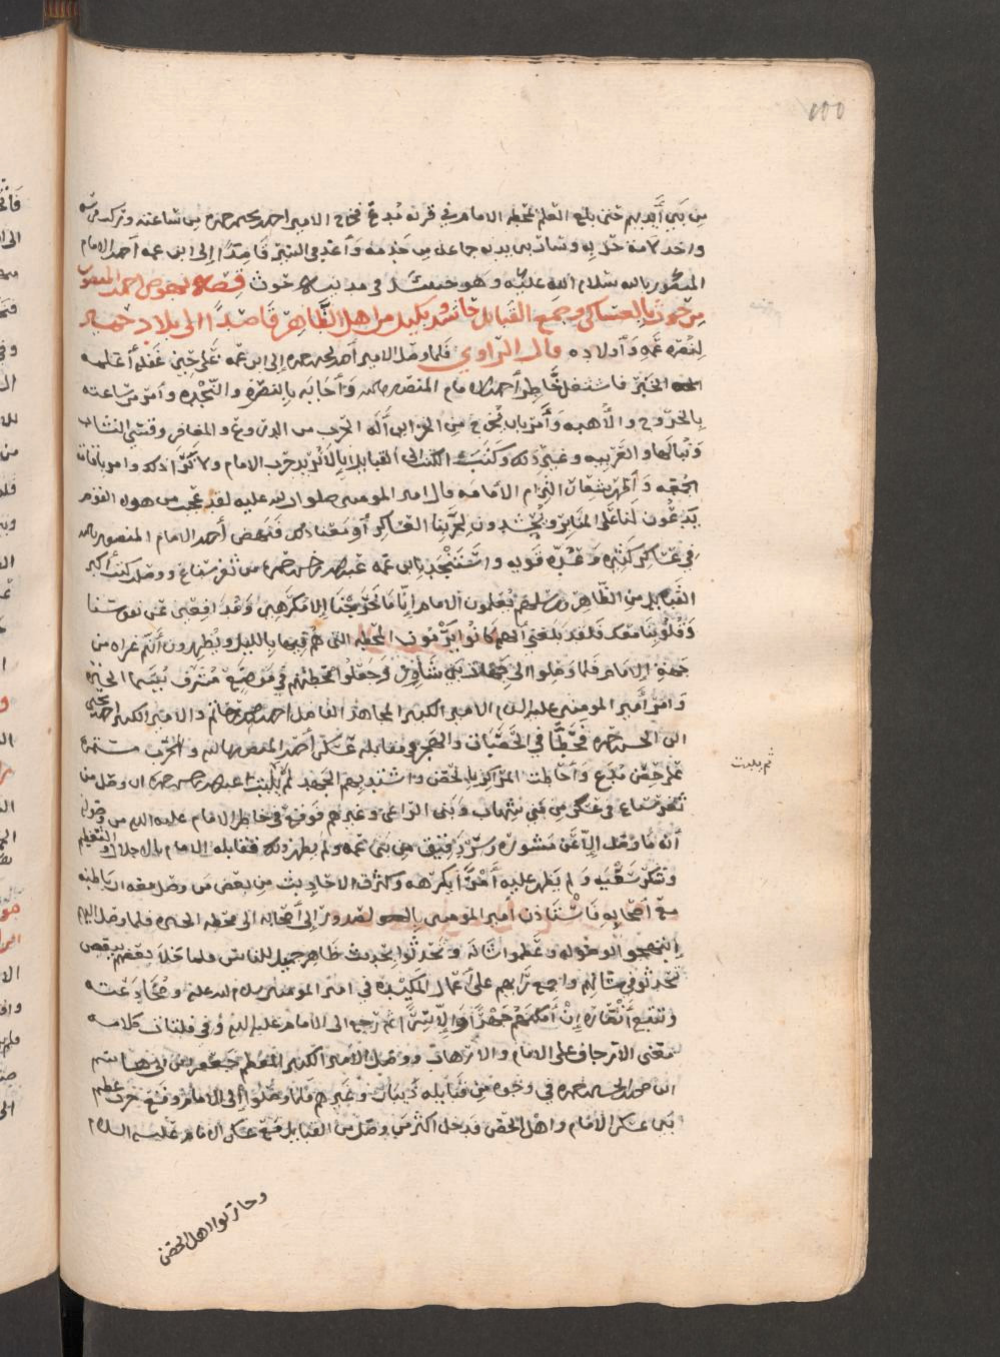 100
من بين أيديهم حتى بلغ العلم محطه الامام في قرنه مدع فخرج الامير احمد بن يحيى بن حمزه من ساعته وترك فرشه
واخذ لامة حربه وسار بين يديه جماعة من خدمه وأغذ في السير قاصدا إلى ابن عمه أحمد الامام
المنصور بالله سلام الله عليه وهو حينئذ في مدينة حوث قصة نهوض احمد المنصور
من حوث بالعساكر وجمع القبائل حاشد وبكيل من اهل الظاهر قاصدا الى بلاد حمير
لنصره عمه وأولاده قال الراوي فلما وصل الامير أحمد بن يحيى بن حمزه إلى ابن عمه على حين غفله أعلمه
الخبر فاشتغل خاطر أحمد الامام المنصور بالله وأجابه بالنصره والنجده وأمر من ساعته
بالخروج والأهبه وأمر بان يخرج من الخزاين آلة الحرب من الدروع والمغافر وقسي النشاب
ونبالها والغريبه وغير ذلك وكتب الكتب إلى القبايل بانا لا نريد حرب الامام ولا
الجمعه وأظهر شعار التزام الامامه قال امير المومنين صلوات الله عليه لقد عجبت من هولاء القوم
يدعون لنا على المنابر ويحشدون لحربنا العساكر أو معنا ذلك فنهض أحمد الامام المنصور بالله
في عساكر كثيره وعده قويه واستنجد بابن عمه عبد الله بن حسن بن حمزه من ثغر صنعاء ووصلت كتب أكبر
القبايل من الظاهر وسلمتهم يعلمون الامام إنا ما نخرج هنا إلا مكرهين ومدافعين عن نفوسنا
وقلوبنا معك فلقد بلغني أنهم كانوا يرمون المحطه التي هم فيها بالليل ويظهرون أنهم غزاه من
جهة الامام فلما وصلوا الى جهات بني شاور وجعلوا محطتهم في موضع مشرف يسما الحيره
وأمر أمير المومنين عليه السلام الامير الكبير المجاهد الفاضل احمد بن محمد بن حاتم والامير الكبير احمد بن يحيى
ابن الحسن بن حمزه فحطا في الحصبات والهجر في مقابله عسكر أحمد المنصور بالله والحرب مستمره
على حصن مدع وأحاطت المراكز بالحصن واشتد بهم الجهد ثم يلبث عبد الله بن حسن بن حمزه ان وصل من
ثم يلبث
ثغر صنعاء في عسكر من بني شهاب وبني الراعي وغيرهم فوقع في خاطر الامام عليه السلام من وصوله
أنه ما وصل إلا عن مشوره وسر دقيق من بني عمه ولم يظهر ذلك فقابله الامام بالاجلال والتعظيم
وشكر سعيه ولم يظهر عليه أمرا يكرهه وكثرت الاحاديث من بعض من وصل معه ان باطنه
مع أصحابه فاستاذن أمير المومنين بالصدور إلى أصحابه الى محطه الحيره فلما وصل اليهم
ابتهجوا بوصوله وعظموا شانه وتحدثوا بحديث ظاهر جميل للناس فلما خلا بعضهم ببعض
تحدثوا في مثالهم واجمع رايهم على أعمال المكيده في امير المومنين سلام الله عليه ومخادعته
وتتبع أنصاره إن أمكنهم جهرا وإلا سرا ثم رجع الى الامام عليه السلام وفي فلتات كلامه
معنى الارجاف على الامام والارهاب ووصل الامير الكبير المعظم جعفر بن ابي هاشم
ابن محمد بن الحسن بن حمزه في وجوه من قبايله ذيبان وغيرهم فلما وصلوا إلى الامام وقع حرب عظيم
بين عسكر الامام واهل الحصن فدخل أكثر من وصل من القبايل مع عسكر الامام عليه السلام
وحاربوا اهل الحصن